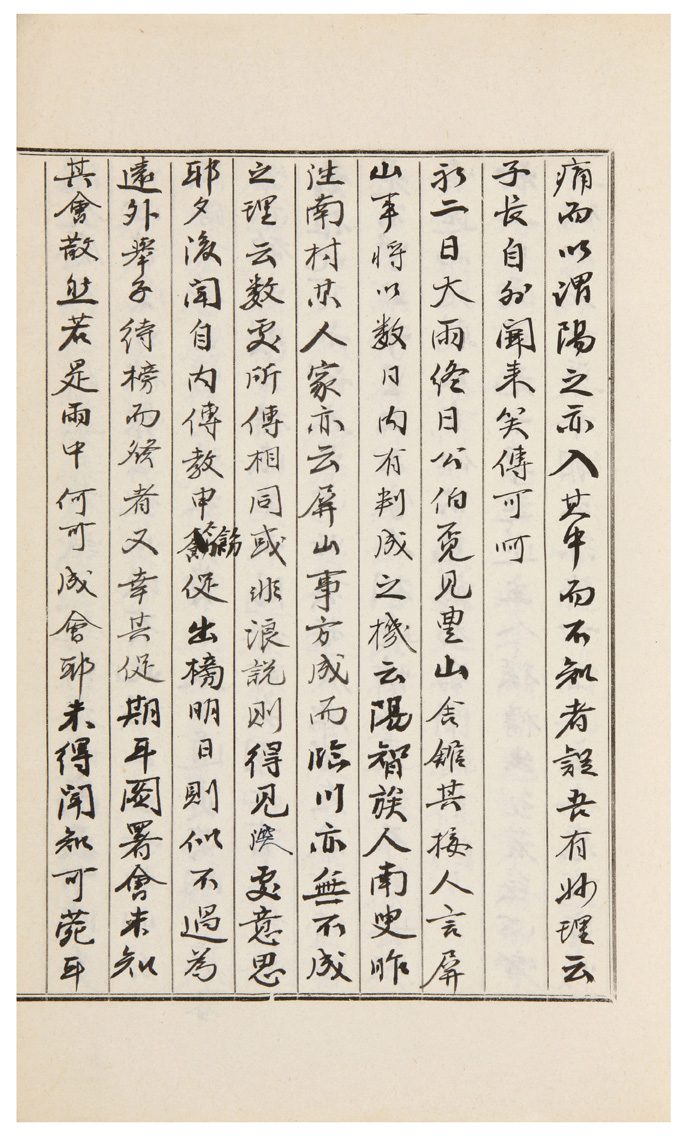 痛而以謂陽之亦入其中而不知者疑吾有妙理云
子長自外聞来笑傳可呵
初二日大雨終日公伯覓見豊山舍館其接人言屛
山事将以数日内有判成之機云陽智族人南叟昨
往南村某人家亦云屛山事方成而臨川亦無不成
之理云数處所傳相同或非浪説則得見渙處意思
耶夕後聞自内傳教申飭促出榜明日則似不過為
遠外擧子待榜而發者又幸其促期耳圈署會未知
其會散然若是雨中何可成會耶未得聞知可菀耳